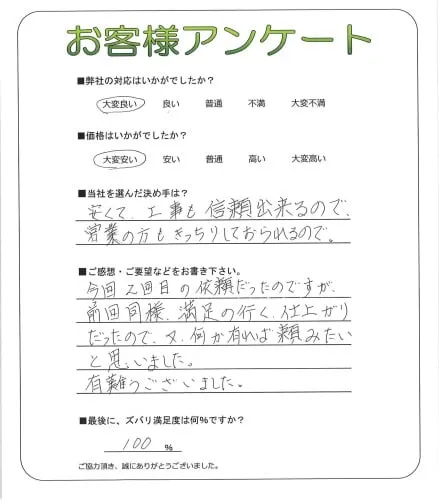 お客様アンケート
■弊社の対応はいかがでしたか?
大変良い 良い 普通 不満 大変不満
■価格はいかがでしたか?
大変安い 安い 普通 高い 大変高い
■当社を選んだ決め手は?
安くて、工事も信頼出来るので、
営業の方もきっちりしておられるので。
■ご感想・ご要望などをお書き下さい。
今回2回目の依頼だったのですが、
前回同様、満足の行く、仕上がり
だったので、又、何か有れば頼みたい
と思いました。
有難うございました。
■最後に、ズバリ満足度は何%ですか?
100 %
ご協力頂き、誠にありがとうございました。